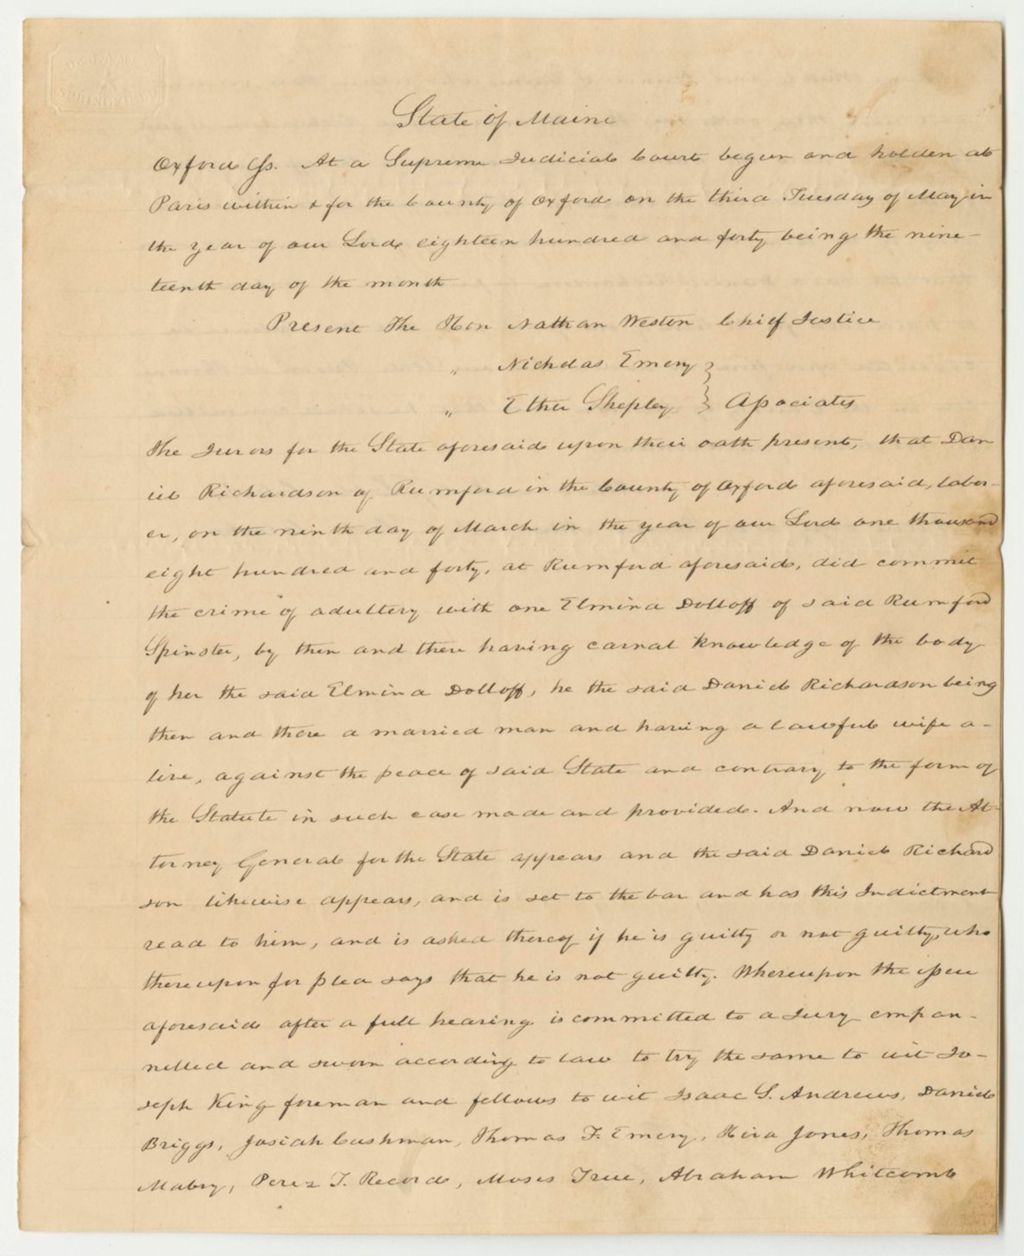 State of Maine
Oxford Ss. At a Supreme Judicial Court begun and holden at
Paris within & for the County of Oxford on the third Tuesday of May in
the year of our Lord eighteen hundred and forty being the nine-
teenth day of the month
Present The Hon Nathan Weston Chief Justice
" Nicholas Emery }
" Ether Shepley } Associates
The Jurors for the State aforesaid upon their oath present, that Dan
iel Richardson of Rumford in the County of Oxford aforesaid, labor-
er, on the ninth day of March in the year of our Lord one thousand
eight hundred and forty, at Rumford aforesaid, did commit
the crime of adultery with one Elmina Dolloff of said Rumford
Spinster, by then and there having carnal knowledge of the body
of her the said Elmina Dolloff, he the said Daniel Richardson being
then and there a married man and having a lawful wife a-
live, against the peace of said State and contrary to the form of
the Statute in such case made and provided. And now the At-
torney General for the State appears and the said Daniel Richard
son likewise appears, and is set to the bar and has this Indictment
read to him, and is asked thereof if he is guilty or not guilty, who
thereupon for plea says that he is not guilty. Whereupon the issue
aforesaid after a full hearing is committed to a Jury empan-
nelled and sworn according to law to try the same to wit Jo-
seph King foreman and fellows to wit Isaac S. Andrews, Daniel
Briggs, Josiah Cushman, Thomas F. Emery, Hira Jones, Thomas
Mabry, Perez T. Record, Moses True, Abraham Whitcomb